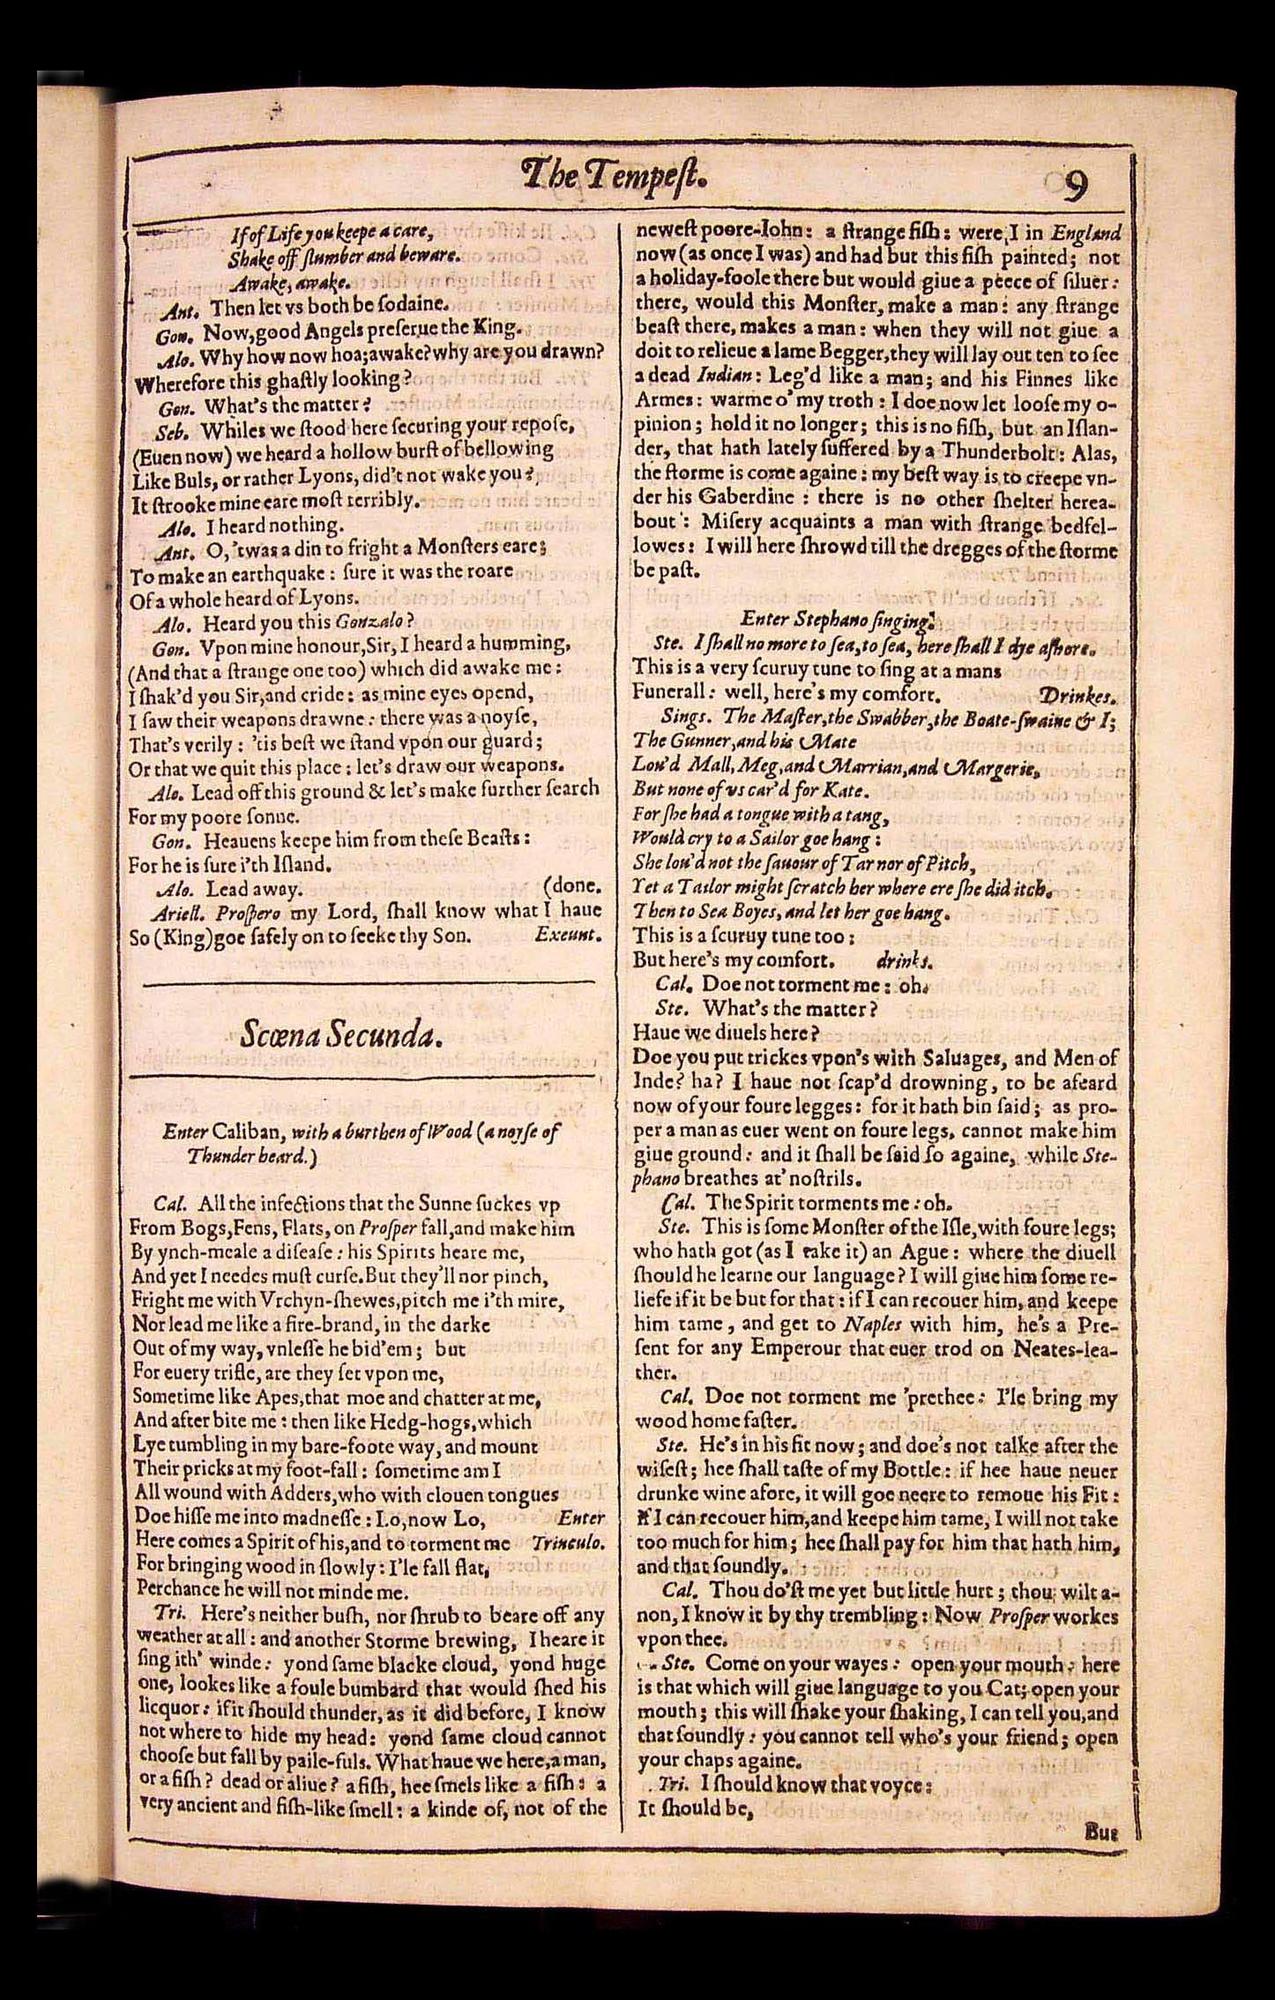 The Tempeſt.
9
If of Life you keepe a care,
Shake off ſlumber and beware.
Awake, awake.
Ant. Then let vs both be ſodaine.
Gon. Now, good Angels preſerue the King.
Alo. Why how now hoa; awake? why are you drawn?
Wherefore this ghaſtly looking?
Gon. What's the matter?
Seb. Whiles we ſtood here ſecuring your repoſe,
(Euen now) we heard a hollow burſt of bellowing
Like Buls, or rather Lyons, did't not wake you?
It ſtrooke mine eare moſt terribly.
Alo. I heard nothing.
Ant. O, 'twas a din to fright a Monſters eare;
To make an earthquake: ſure it was the roare
Of a whole heard of Lyons.
Alo. Heard you this Gonzalo?
Gon. Vpon mine honour, Sir, I heard a humming,
(And that a ſtrange one too) which did awake me:
I ſhak'd you Sir, and cride: as mine eyes opend,
I ſaw their weapons drawne: there was a noyſe,
That's verily: 'tis beſt we ſtand vpon our guard;
Or that we quit this place: let's draw our weapons.
Alo. Lead off this ground & let's make further ſearch
For my poore ſonne.
Gon. Heauens keepe him from theſe Beaſts:
For he is ſure i'th Iſland.
Alo. Lead away. (done.
Ariell. Proſpero my Lord, ſhall know what I haue
So (King) goe ſafely on to ſeeke thy Son. Exeunt.
Scœna Secunda.
Enter Caliban, with a burthen of Wood (a noyſe of
Thunder heard.)
Cal. All the infections that the Sunne ſuckes vp
From Bogs, Fens, Flats, on Proſper fall, and make him
By ynch-meale a diſeaſe: his Spirits heare me,
And yet I needes muſt curſe. But they'll nor pinch,
Fright me with Vrchyn-ſhewes, pitch me i'th mire,
Nor lead me like a fire-brand, in the darke
Out of my way, vnleſſe he bid'em; but
For euery trifle, are they ſet vpon me,
Sometime like Apes, that moe and chatter at me,
And after bite me: then like Hedg-hogs, which
Lye tumbling in my bare-foote way, and mount
Their pricks at my foot-fall: ſometime am I
All wound with Adders, who with clouen tongues
Doe hiſſe me into madneſſe: Lo, now Lo, Enter
Here comes a Spirit of his, and to torment me Trinculo.
For bringing wood in ſlowly: I'le fall flat,
Perchance he will not minde me.
Tri. Here's neither buſh, nor ſhrub to beare off any
weather at all: and another Storme brewing, I heare it
ſing ith' winde: yond ſame blacke cloud, yond huge
one, lookes like a foule bumbard that would ſhed his
licquor: if it ſhould thunder, as it did before, I know
not where to hide my head: yond ſame cloud cannot
chooſe but fall by paile-fuls. What haue we here, a man,
or a fiſh? dead or aliue? a fiſh, hee ſmels like a fiſh: a
very ancient and fiſh-like ſmell: a kinde of, not of the
neweſt poore-Iohn: a ſtrange fiſh: were I in England
now (as once I was) and had but this fiſh painted; not
a holiday-foole there but would giue a peece of ſiluer:
there, would this Monſter, make a man: any ſtrange
beaſt there, makes a man: when they will not giue a
doit to relieue a lame Begger, they will lay out ten to ſee
a dead Indian: Leg'd like a man; and his Finnes like
Armes: warme o' my troth: I doe now let looſe my o-
pinion; hold it no longer; this is no fiſh, but an Iſlan-
der, that hath lately ſuffered by a Thunderbolt: Alas,
the ſtorme is come againe: my beſt way is to creepe vn-
der his Gaberdine: there is no other ſhelter herea-
bout: Miſery acquaints a man with ſtrange bedfel-
lowes: I will here ſhrowd till the dregges of the ſtorme
be paſt.
Enter Stephano ſinging.
Ste. I ſhall no more to ſea, to ſea, here ſhall I dye aſhore.
This is a very ſcuruy tune to ſing at a mans
Funerall: well, here's my comfort. Drinkes.
Sings. The Maſter, the Swabber, the Boate-ſwaine & I;
The Gunner, and his Mate
Lou'd Mall, Meg, and Marrian, and Margerie,
But none of vs car'd for Kate.
For ſhe had a tongue with a tang,
Would cry to a Sailor goe hang:
She lou'd not the ſauour of Tar nor of Pitch,
Yet a Tailor might ſcratch her where ere ſhe did itch.
Then to Sea Boyes, and let her goe hang.
This is a ſcuruy tune too:
But here's my comfort. drinks.
Cal. Doe not torment me: oh.
Ste. What's the matter?
Haue we diuels here?
Doe you put trickes vpon's with Saluages, and Men of
Inde? ha? I haue not ſcap'd drowning, to be afeard
now of your foure legges: for it hath bin ſaid; as pro-
per a man as euer went on foure legs, cannot make him
giue ground: and it ſhall be ſaid ſo againe, while Ste-
phano breathes at' noſtrils.
Cal. The Spirit torments me: oh.
Ste. This is ſome Monſter of the Iſle, with foure legs;
who hath got (as I take it) an Ague: where the diuell
ſhould he learne our language? I will giue him ſome re-
liefe if it be but for that: if I can recouer him, and keepe
him tame, and get to Naples with him, he's a Pre-
ſent for any Emperour that euer trod on Neates-lea-
ther.
Cal. Doe not torment me 'prethee: I'le bring my
wood home faſter.
Ste. He's in his fit now; and doe's not talke after the
wiſeſt; hee ſhall taſte of my Bottle: if hee haue neuer
drunke wine afore, it will goe neere to remoue his Fit:
if I can recouer him, and keepe him tame, I will not take
too much for him; hee ſhall pay for him that hath him,
and that ſoundly.
Cal. Thou do'ſt me yet but little hurt; thou wilt a-
non, I know it by thy trembling: Now Proſper workes
vpon thee.
Ste. Come on your wayes: open your mouth: here
is that which will giue language to you Cat; open your
mouth; this will ſhake your ſhaking, I can tell you, and
that ſoundly: you cannot tell who's your friend; open
your chaps againe.
Tri. I ſhould know that voyce:
It ſhould be,
But